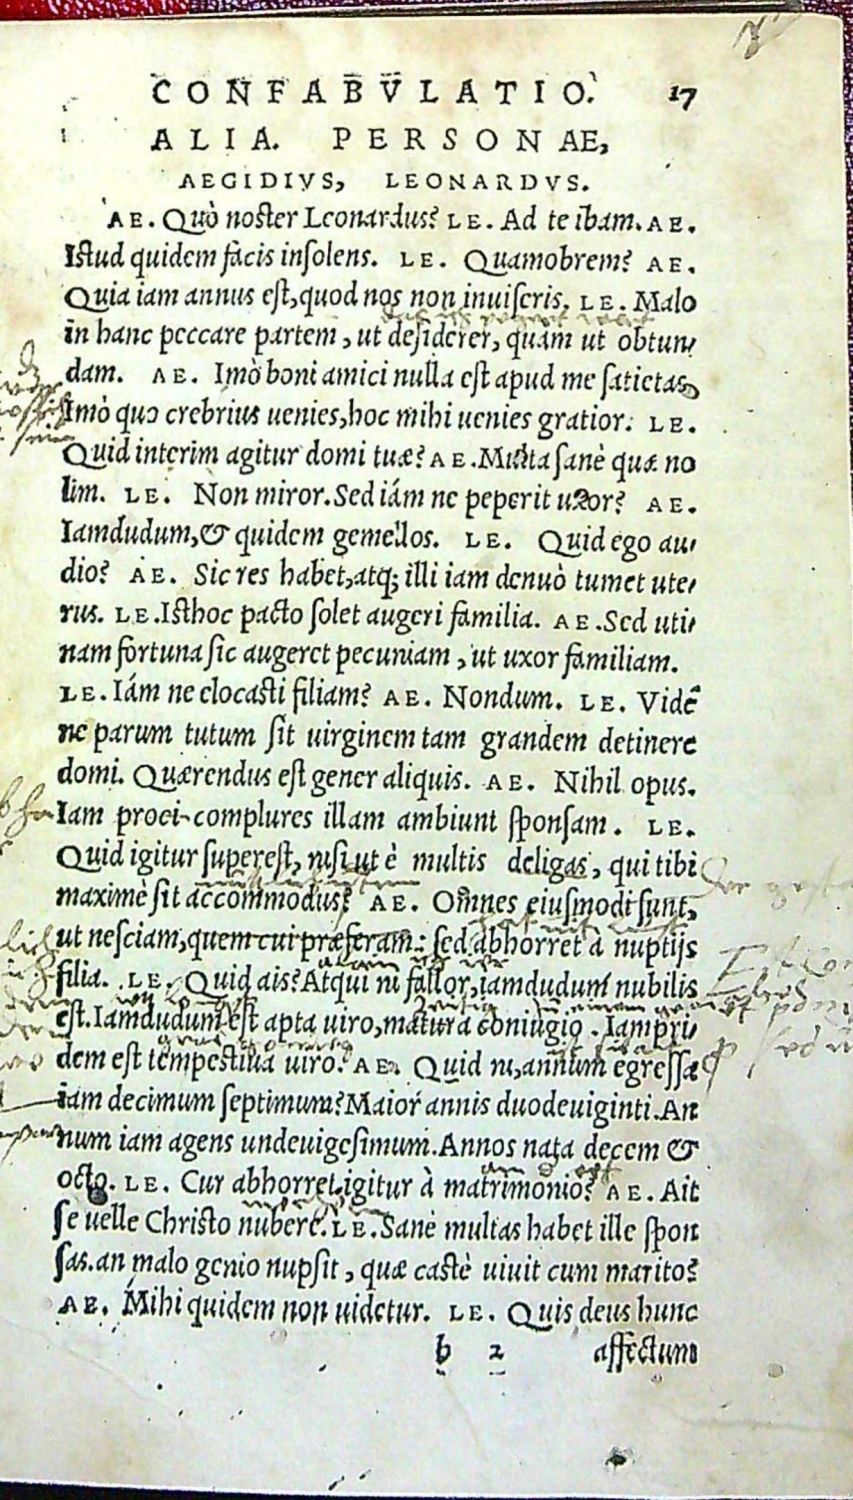 CONFABVLATIO. 17
ALIA. PERSONAE,
AEGIDIVS, LEONARDVS.
AE. Quò noster Leonardus? LE. Ad te ibam. AE.
Istud quidem facis insolens. LE. Quamobrem? AE.
Quia iam annus est, quod nos non inuiseris. LE. Malo
in hanc peccare partem, ut desiderer, quàm ut obtun-
dam. AE. Imò boni amici nulla est apud me satietas,
Imò quo crebrius uenies, hoc mihi uenies gratior. LE.
Quid interim agitur domi tuæ? AE. Multa sanè quæ no
lim. LE. Non miror. Sed iám ne peperit uxor? AE.
Iamdudum, & quidem gemellos. LE. Quid ego au-
dio? AE. Sic res habet, atq; illi iam denuò tumet ute-
rus. LE. Isthoc pacto solet augeri familia. AE. Sed uti-
nam fortuna sic augeret pecuniam, ut uxor familiam.
LE. Iám ne elocasti filiam? AE. Nondum. LE. Vidē
ne parum tutum sit uirginem tam grandem detinere
domi. Quærendus est gener aliquis. AE. Nihil opus.
Iam proci complures illam ambiunt sponsam. LE.
Quid igitur superest, nisi ut è multis deligas, qui tibi
maximè sit accommodus? AE. Omnes eiusmodi sunt,
ut nesciam, quem cui præferam: sed abhorret à nuptijs
filia. LE. Quid ais? Atqui ni fallor, iamdudum nubilis
est. Iamdudum est apta uiro, matura coniugio. Iam pri-
dem est tempestiua uiro. AE. Quid ni, annum egressa
iam decimum septimum? Maior annis duodeuiginti. An
num iam agens undeuigesimum. Annos nata decem &
octo. LE. Cur abhorret igitur à matrimonio? AE. Ait
se uelle Christo nubere. LE. Sanè multas habet ille spon
sas. an malo genio nupsit, quæ castè uiuit cum marito?
AE. Mihi quidem non uidetur. LE. Quis deus hunc
b 2 affectum